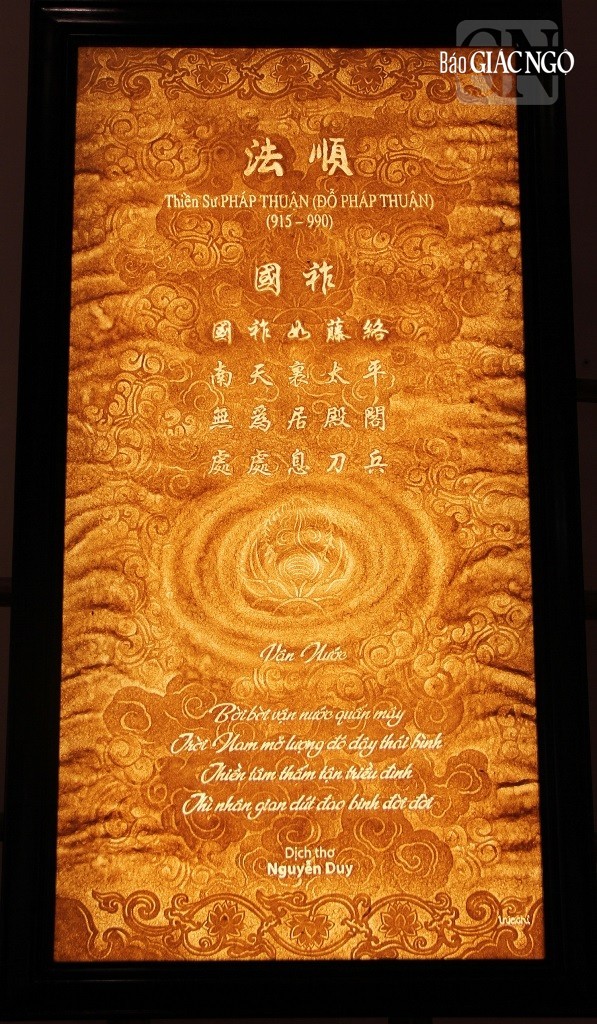 Báo GIÁC NGỘ
法順
Thiền Sư PHÁP THUẬN (ĐỖ PHÁP THUẬN)
(915 – 990)
國祚
國祚如藤絡
南天裏太平
無爲居殿閣
處處息刀兵
Vận Nước
Bời bời vận nước quấn mây
Trời Nam mở lượng đó đây thái bình
Thiền tâm thấm tận triều đình
Thì nhân gian dứt đao binh đời đời
Dịch thơ
Nguyễn Duy